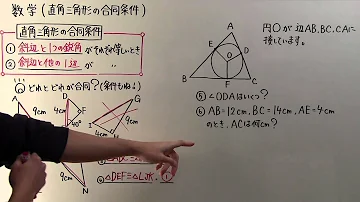 数学(直角三角形の合同条件)
直角三角形の合同条件
① 斜辺と1つの鋭角がそれぞれ等しいとき
② 斜辺と他の1辺が 〃
どれとどれが合同?(条件もね!)
A
9cm
D
F
4cm
E
G
9cm
H
4cm
9cm
4cm
N
⑥ △DEF≡△LJK, ①
A
E
D
F
O
B
C
円Oが辺AB, BC, CAに
接しています。
⑤ ∠ODAはいくつ?
⑥ AB=12cm, BC=14cm, AE=4cm
のとき、ACは何cm?